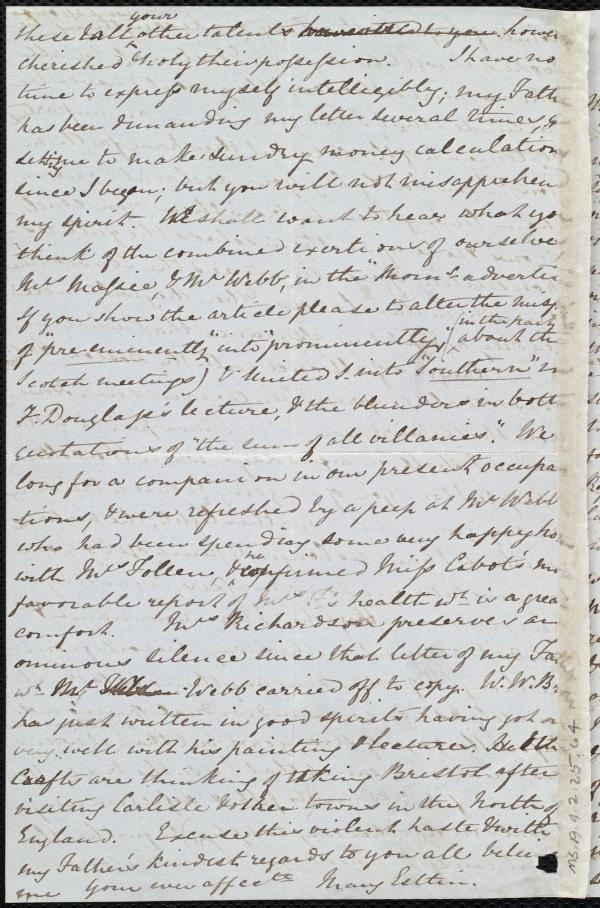 these & all your other talents however
cherished & holy their possession. I have no
time to express myself intelligibly; my Fath
has been demanding my letter several times, &
setting me to make sundry money calculation
since I began; but you will not misapprehen
my spirit. We shall want to hear what yo
think of the combined exertions of ourselve
Mrs Massie & Mr Webb, in the "Morng. adverti
If you show the article please to alter the misp
of "pre-eminently" into "prominently," (in the part about the
Scotch meetings) & United S. into "Southern" in
F. Douglass's lecture, & the blunders in both
quotations of "the sum of all villanies." We
long for a companion in our present occupa
tions, & were refreshed by a peep at Mr Webb
who had been spending some very happy ho
with Mrs Follen, & he confirmed Miss Cabot's mo
favorable report of Mrs F's health wh. is a grea
comfort. Mrs Richardson preserves an
ominous silence since that letter of my Fa
wh. Mr Webb carried off to copy. W. W. Br
has just written in good spirits having got on
very well with his painting & lecture. He & the
Crafts are thinking of taking Bristol after
visiting Carlisle & other towns in the North of
England. Excuse this violent haste & with
my Father's kindest regards to you all belie
me your ever affecte. Mary Estlin.
MS.A.9.2.25.64